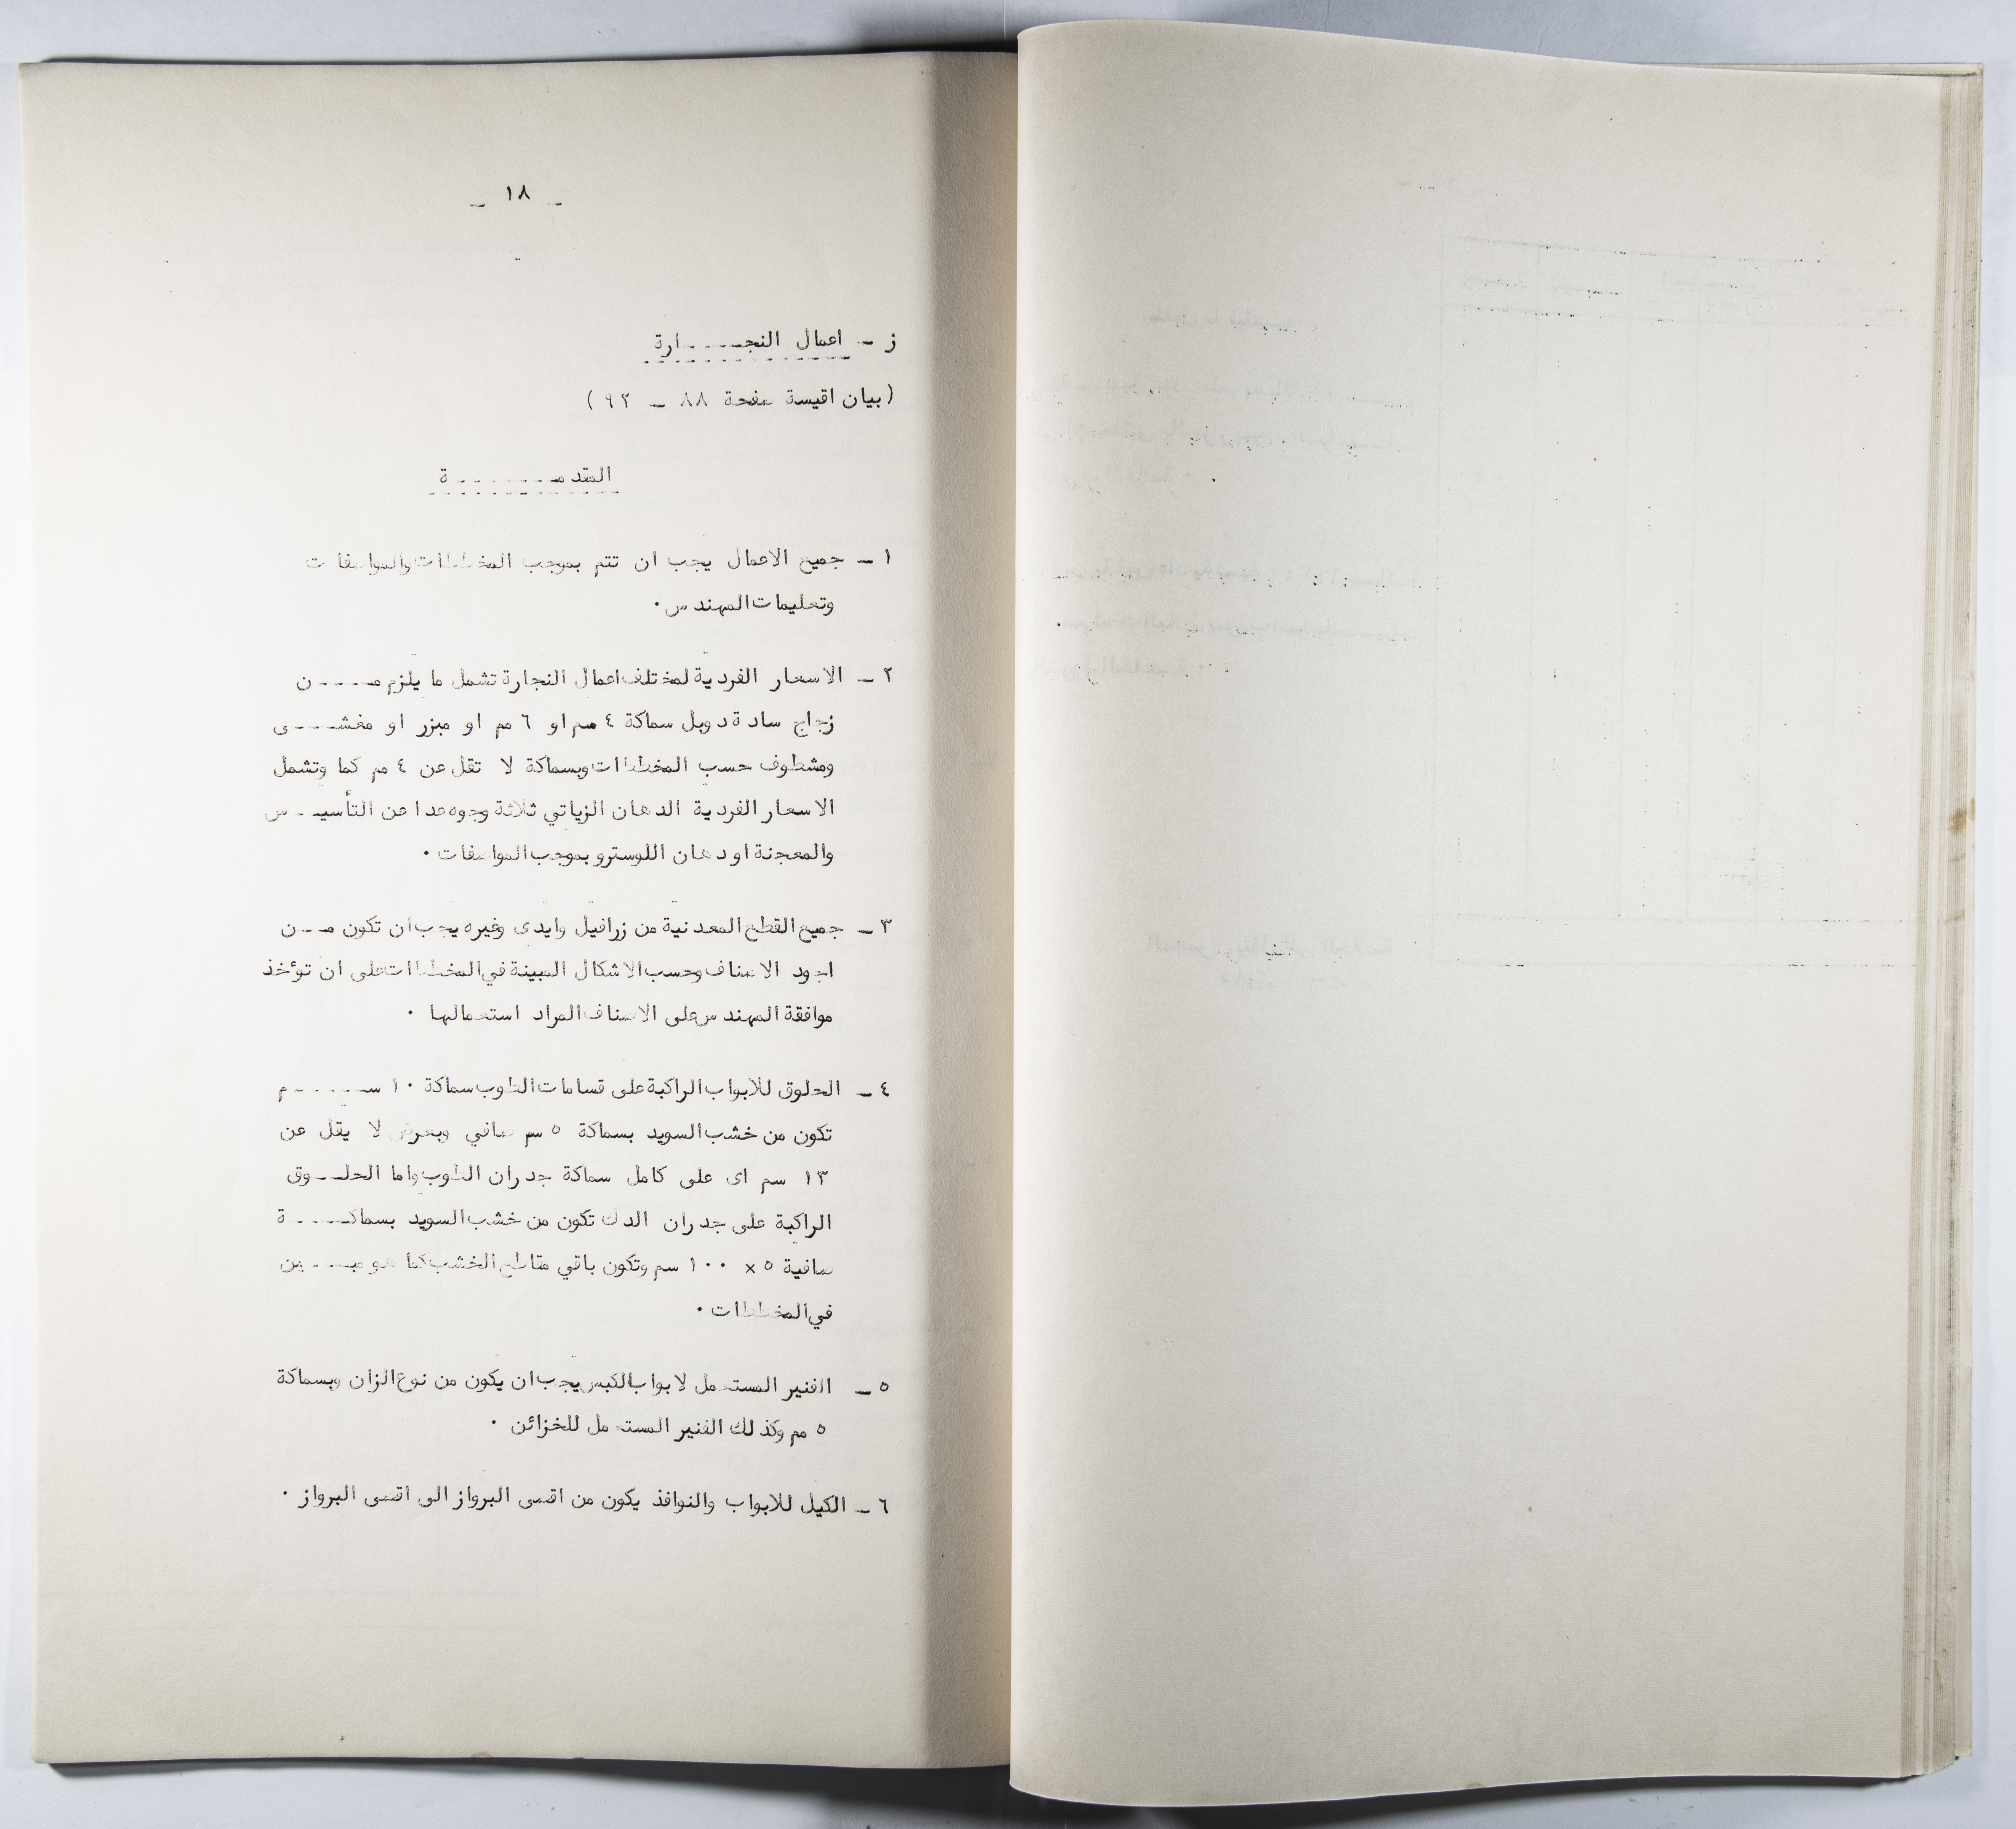 _ ١٨ _
ز - اعمال النجـــــارة
(بيان اقيسة صفحة ٨٨ - ٩٢)
المقدمـــــــــة
١ - جميع الاعمال يجب ان تتم بموجب المخططات والمواصفات
وتعليمات المهندس.
٢ - الاسعار الفردية لمختلف اعمال النجارة تشمل ما يلزم مـــــن
زجاج سادة دوبل سماكة ٤ مم او ٦ مم او مبزر او مغشــــى
ومشطوف حسب المخططات وبسماكة لا تقل عن ٤ مم كما وتشمل
الاسعار الفردية الدهان الزياتي ثلاثة وجوه عدا عن التأسيــس
والمعجنة او دهان اللوسترو بموجب المواصفات .
٣ - جميع القطع المعدنية من زرافيل وايدى وغيره يجب ان تكون مـــن
اجود الاصناف وحسب الاشكال المبينة في المخططات على ان توٴخذ
موافقة المهندس على الاصناف المراد استعمالها .
٤ - الحلوق للابواب الراكبة على قسامات الطوب سماكة ١٠ ســـــــم
تكون من خشب السويد بسماكة ٥ سم صافي وبعرض لا يقل عن
١٣ سم اى على كامل سماكة جدران الطوب واما الحلــــوق
الراكبة على جدران الدك تكون من خشب السويد بسماكـــــة
صافية ٥ × ١٠٠ سم وتكون باقي مقاطع الخشب كما هو مبـــــين
في المخططات .
٥ - الفنير المستعمل لابواب الكبس يجب ان يكون من نوع الزان وبسماكة
٥ مم وكذلك الفنير المستعمل للخزائن .
٦ - الكيل للابواب والنوافذ يكون من اقصى البرواز الى اقصى البرواز .